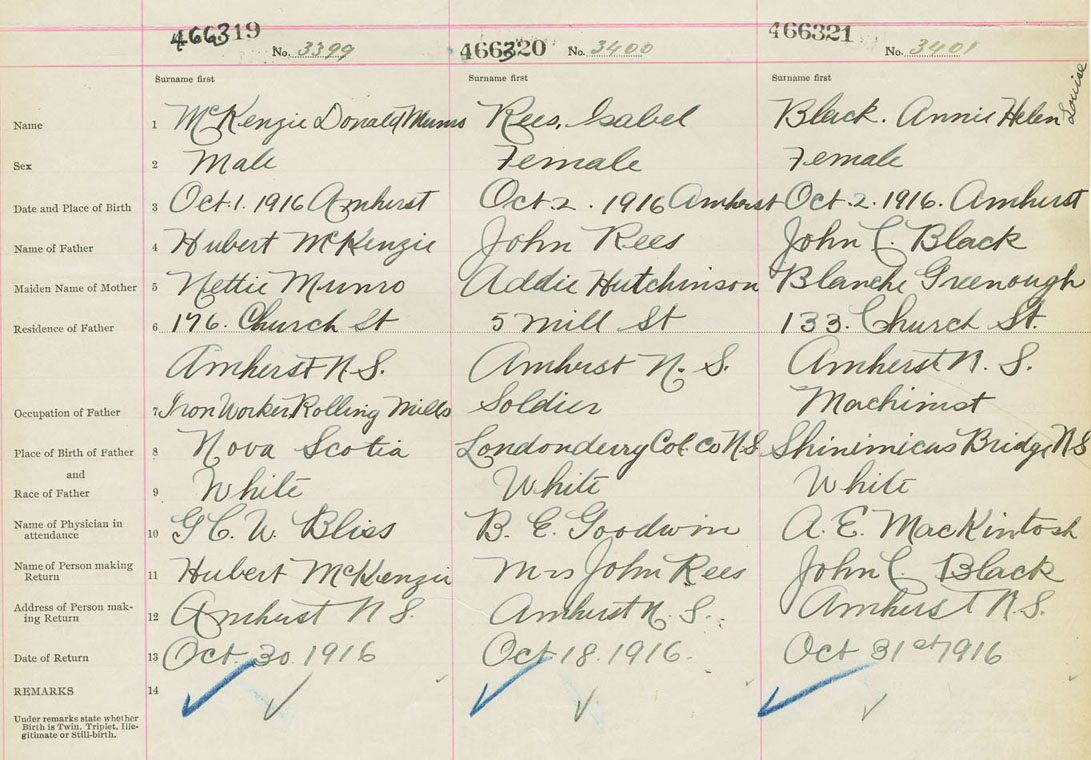 466319 No. 3399 466320 No. 3400 466321 No. 3401
Surname first Surname first Surname first
Name 1 McKenzie Donald Munro Rees, Isabel Black. Annie Helen Louise
Sex 2 Male Female Female
Date and Place of Birth 3 Oct. 1. 1916 Amherst Oct. 2. 1916 Amherst Oct. 2. 1916. Amherst
Name of Father 4 Hubert McKenzie John Rees John C. Black
Maiden Name of Mother 5 Nettie Munro Addie Hutchinson Blanche Greenough
Residence of Father 6 176. Church St 5 Mill St 133. Church St.
Amherst N.S. Amherst N. S. Amherst N. S.
Occupation of Father 7 Iron Worker Rolling Mills Soldier Machinist
Place of Birth of Father 8 Nova Scotia Londonderry Col. Co N.S. Shinimicas Bridge N.S
and
Race of Father 9 White White White
Name of Physician in
attendance 10 G C. W. Bliss B. E. Goodwin A. E. MacKintosh
Name of Person making
Return 11 Hubert McKenzie Mrs John Rees John C. Black
Address of Person mak-
ing Return 12 Amherst N S. Amherst N. S. Amherst N.S.
Date of Return 13 Oct. 30. 1916 Oct 18. 1916. Oct 31st 1916
REMARKS 14
Under remarks state whether
Birth is Twin, Triplet, Ille-
gitimate or Still-birth.